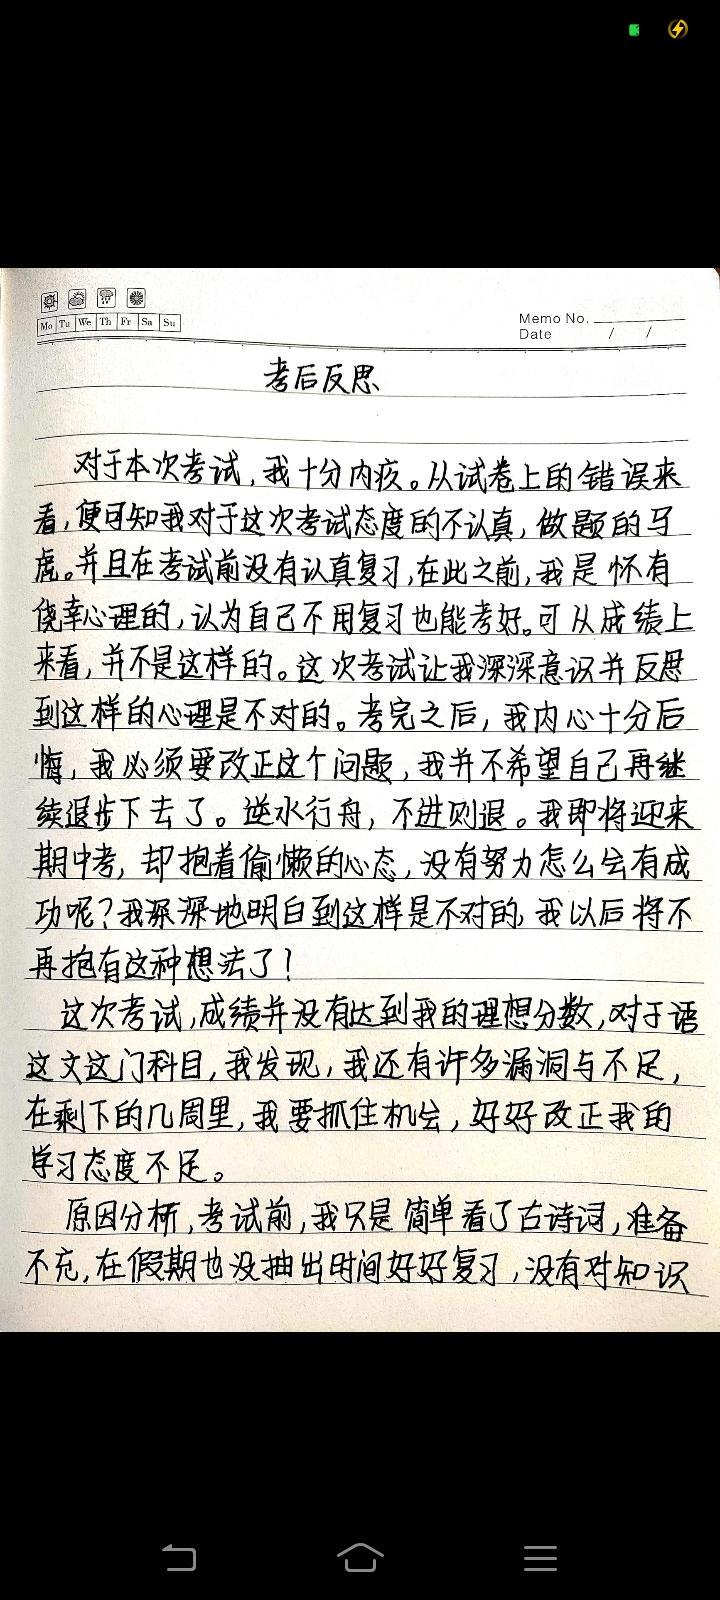 Mo Tu We Th Fr Sa Su
Memo No.
Date / /
考后反思
对于本次考试,我十分内疚。从试卷上的错误来
看,便可知我对于这次考试态度的不认真,做题的马
虎。并且在考试前没有认真复习,在此之前,我是怀有
侥幸心理的,认为自己不用复习也能考好。可从成绩上
来看,并不是这样的。这次考试让我深深意识并反思
到这样的心理是不对的。考完之后,我内心十分后
悔,我必须要改正这个问题,我并不希望自己再继
续退步下去了。逆水行舟,不进则退。我即将迎来
期中考,却抱着偷懒的心态,没有努力怎么会有成
功呢?我深深地明白到这样是不对的,我以后将不
再抱有这种想法了!
这次考试,成绩并没有达到我的理想分数,对于语
这文这门科目,我发现,我还有许多漏洞与不足,
在剩下的几周里,我要抓住机会,好好改正我的
学习态度不足。
原因分析,考试前,我只是简单看了古诗词,准备
不充,在假期也没抽出时间好好复习,没有对知识